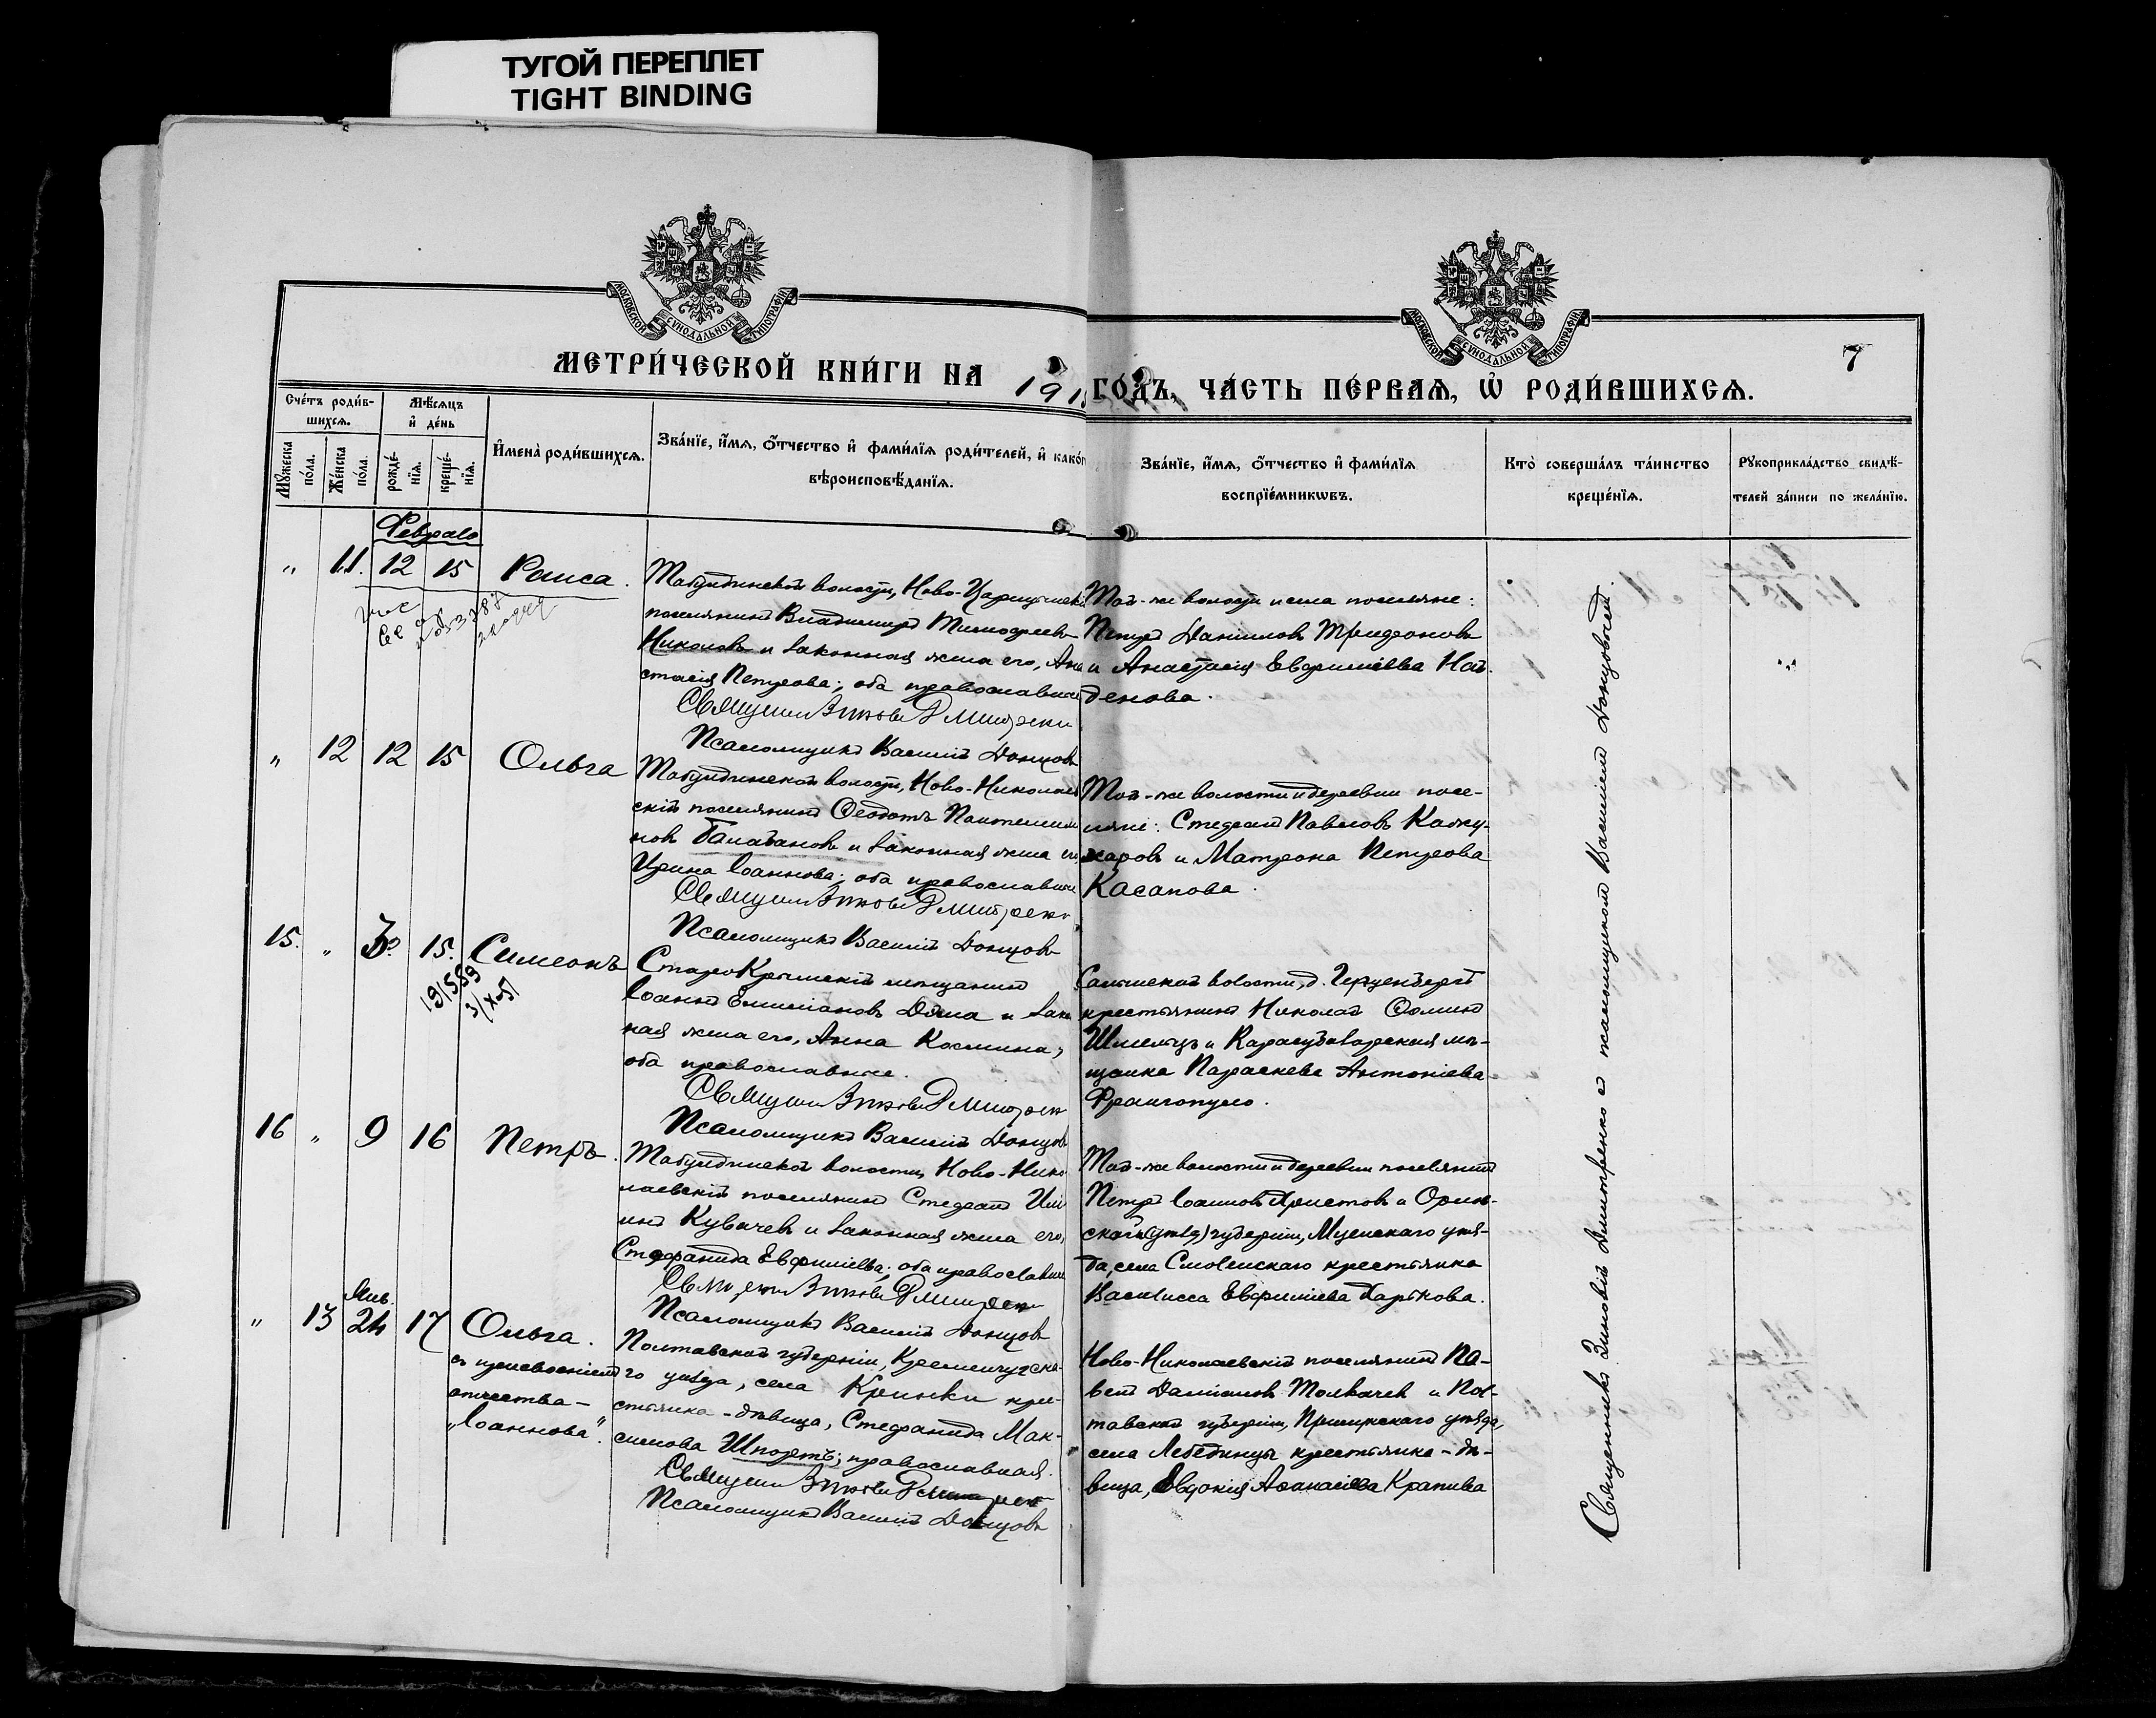 ТУГОЙ ПЕРЕПЛЕТ
TIGHT BINDING
МОСКОВСКОЙ СУНОДАЛЬНОЙ ТИПОГРАФІИ
МОСКОВСКОЙ СУНОДАЛЬНОЙ ТИПОГРАФІИ
7
МЕТРИ́ЧЕСКОЙ КНИ́ГИ НА 191
ГО́ДЪ, ЧА́СТЬ ПЕ́РВАѦ, Ѡ҆ РОДИ́ВШИХСѦ.
Сче́тъ роди́в-
шихсѧ.
Мѣ́сѧцъ
и҆ де́нь
Мꙋ́жеска
по́ла.
Же́нска
по́ла.
рожде́-
нїѧ.
креще́-
нїѧ.
И҆мена̀ роди́вшихсѧ.
Зва́нїе, и҆́мѧ, ѻ҆́тчество и҆ фами́лїѧ роди́телей, и҆ како́г
вѣроисповѣ́данїѧ.
Зва́нїе, и҆́мѧ, ѻ҆́тчество и҆ фами́лїѧ
воспрїе́мникѡвъ.
Кто̀ соверша́лъ та́инство
креще́нїѧ.
Рꙋкоприкла́дство свидѣ́-
телей за́писи по жела́нїю.
Февраль
" 11. 12 15 Раиса.
Табулдинской волости, Ново-Царицынскі
поселянинъ Владимиръ Тимофеевъ
Николовъ и законная жена его, Ана
стасія Петрова; оба православные
Священникъ Зиновій Дмитренко
Псаломщикъ Василій Донцовъ
Той-же волости и села поселяне:
Петръ Даніиловъ Трифоновъ
и Анастасія Евфиміева Най-
денова.
" 12 12 15 Ольга
Табулдинской волости, Ново-Николаев
скій поселянинъ Ѳеодотъ Пантелеимо
новъ Балабановъ и законная жена его
Ирина Іоаннова; оба православные
Священникъ Зиновій Дмитренко
Псаломщикъ Василій Донцовъ
Той-же волости и деревни посе-
ляне: Стефанъ Павловъ Кажу-
харовъ и Матрона Петрова
Касапова.
15. " 3 15. Симеонъ
Старо Крымскій мещанинъ
Іоаннъ Емиліановъ Дяма и закон
ная жена его, Анна Космина,
оба православные.
Священникъ Зиновій Дмитренко
Псаломщикъ Василій Донцовъ
волости, д.
крестьянинъ Николай Ѳоминъ
Шмельцъ и Карасубазарская мѣ-
щанка Параскева Антоніева
Франгопуло.
16 " 9 16 Петръ.
Табулдинской волости, Ново-Нико
лаевскій поселянинъ Стефанъ Или
инъ Кувачевъ и законная жена его,
Стефанида Евфиміева; оба православные
Священникъ Зиновій Дмитренко
Псаломщикъ Василій Донцовъ
Той-же волости и деревни поселянинъ
Петръ Іоанновъ Христовъ и Орлов-
ской губерніи, Мценскаго уѣз-
да, села Смоленскаго крестьянка
Василисса Евфиміева Харькова.
Янв.
" 13 24 17 Ольга.
съ присвоеніемъ
отчества -
„Іоаннова".
Полтавской губерніи, Кременчугска-
го уѣзда, села Кринки кре-
стьянка-дѣвица, Стефанида Мак-
симова Шпортъ; православная.
Священникъ Зиновій Дмитренко
Псаломщикъ Василій Донцовъ
Ново-Николаевскій поселянинъ Па-
велъ Даміановъ Толвачевъ и Пол-
тавской губерніи, Прилукскаго уѣзда,
села Лебединцы крестьянка-дѣ-
вица, Евдокія Аѳанасіева Кратива
Священникъ Зиновій Дмитренко съ псаломщикомъ Василіемъ Донцовымъ.